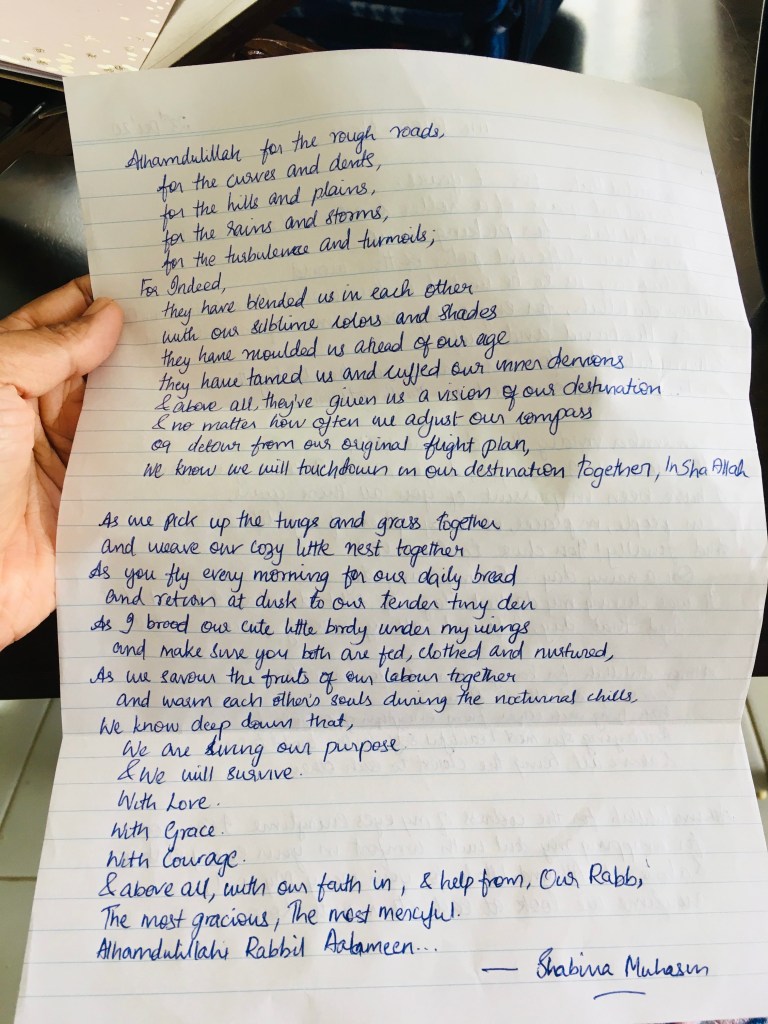 Alhamdulillah for the rough roads,
for the curves and dents,
for the hills and plains,
for the rains and storms,
for the turbulence and turmoils;
For Indeed,
they have blended us in each other
with our sublime colors and shades
they have moulded us ahead of our age
they have tamed us and cuffed our inner demons
& above all, they've given us a vision of our destination
& no matter how often we adjust our compass
or detour from our original flight plan,
We know we will touchdown in our destination together, InSha Allah
As we pick up the twigs and grass together
and weave our cozy little nest together
As you fly every morning for our daily bread
and return at dusk to our tender tiny den
As I brood our cute little birdy under my wings
and make sure you both are fed, clothed and nurtured,
As we savour the fruits of our labour together
and warm each other's souls during the nocturnal chills,
We know deep down that,
We are living our purpose
& We will survive.
With Love.
With Grace.
With Courage.
& above all, with our faith in, & help from, Our Rabb,
The most gracious, The most merciful.
Alhamdulillahi Rabbil Aalameen...
— Shabina Muhasin